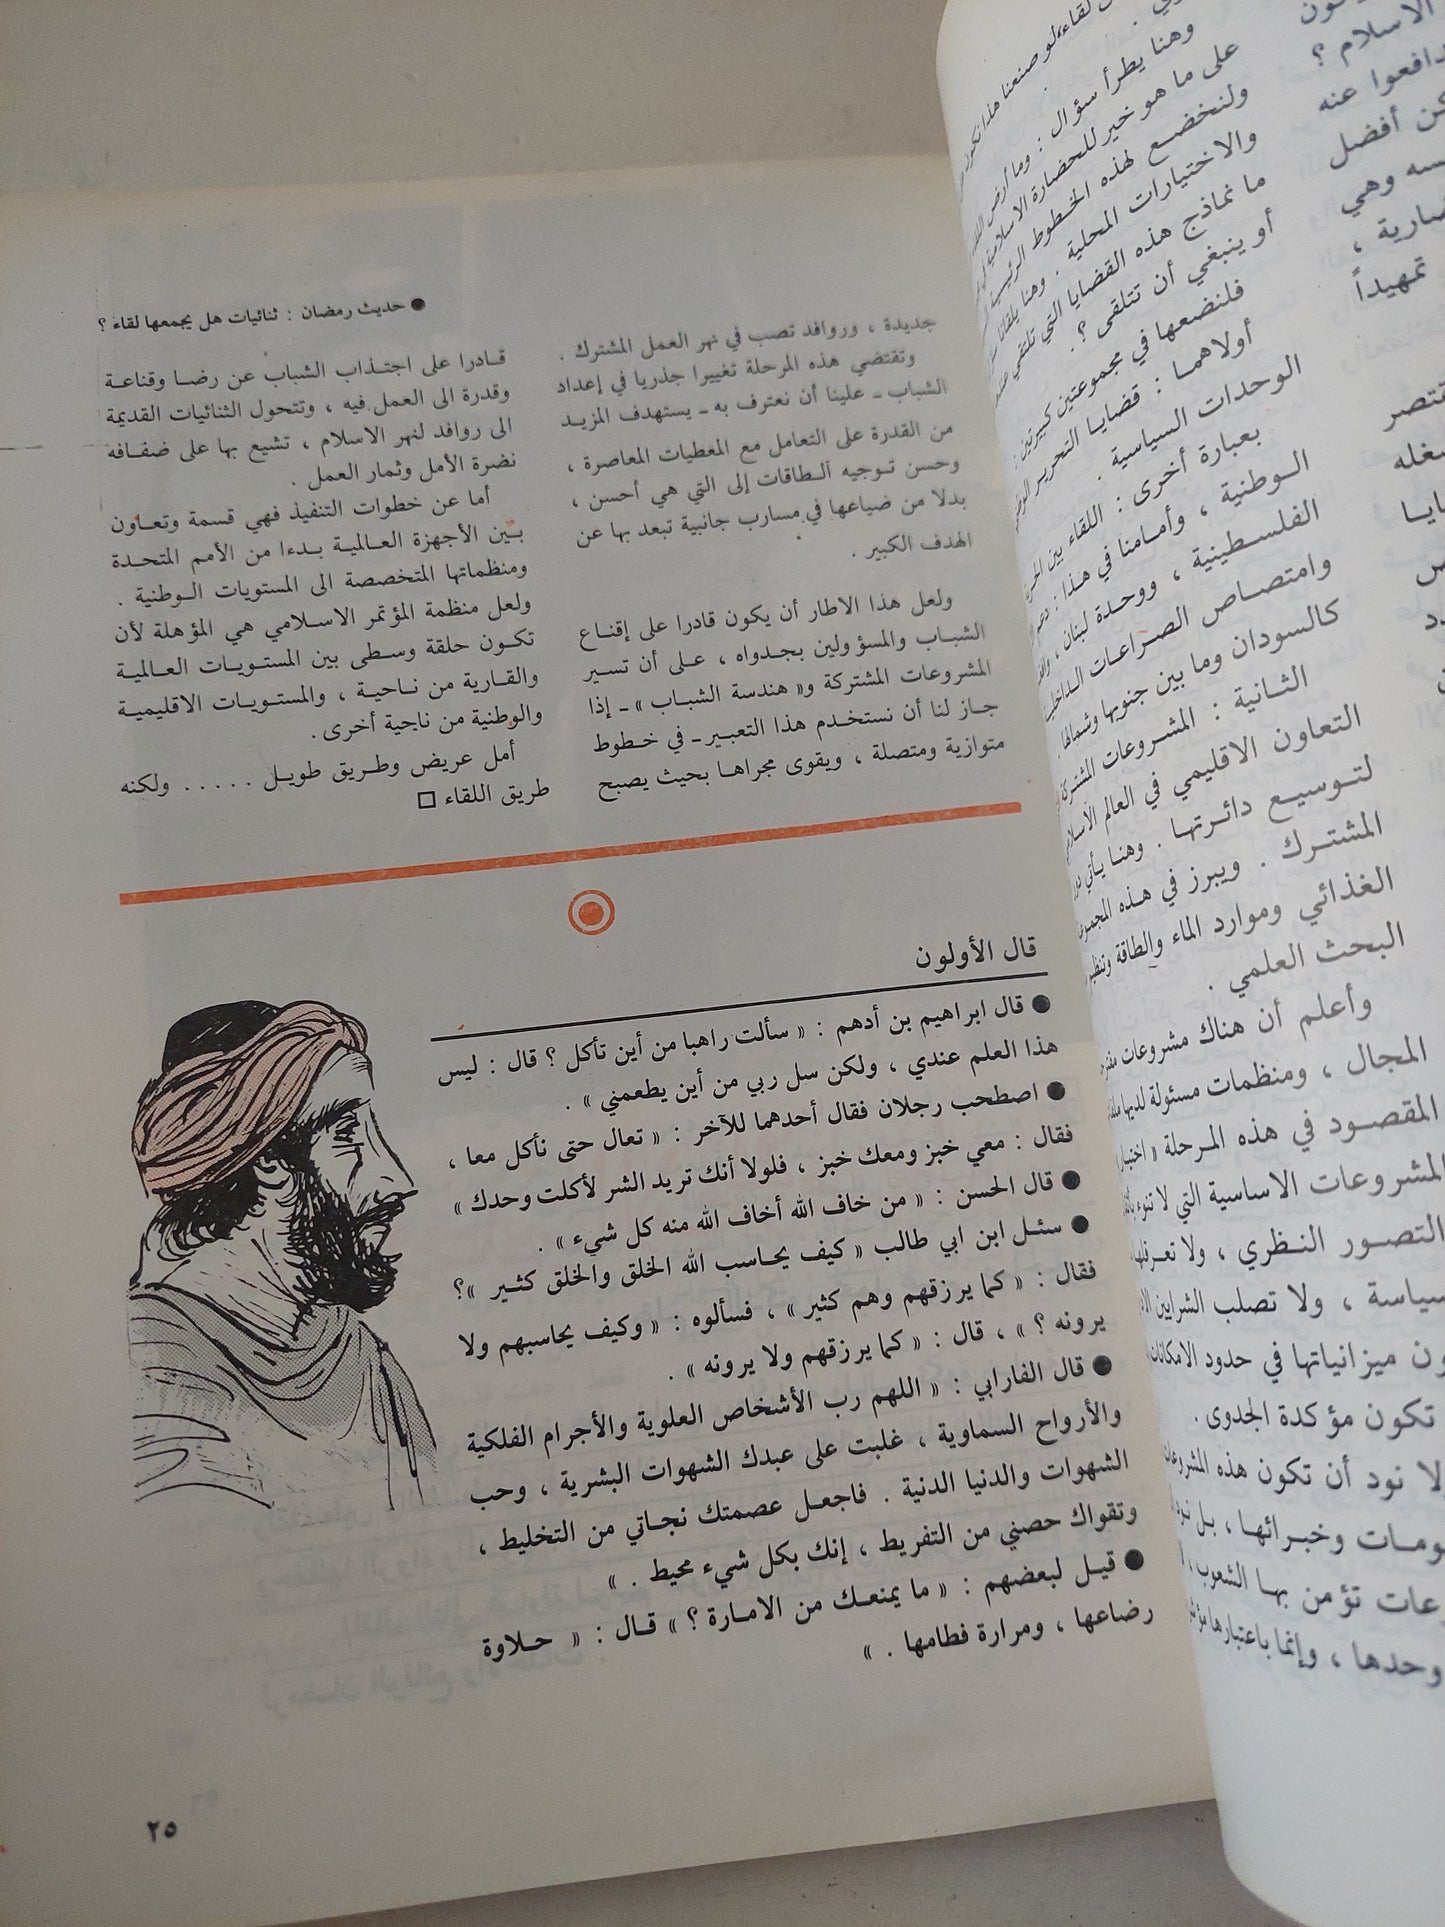 ● حديث رمضان : ثنائيات هل يجمعها لقاء ؟
جديدة ، وروافد تصب في نهر العمل المشترك .
وتقتضي هذه المرحلة تغييرا جذريا في إعداد
الشباب ـ علينا أن نعترف به ـ يستهدف المزيد
من القدرة على التعامل مع المعطيات المعاصرة ،
وحسن توجيه الطاقات إلى التي هي أحسن ،
بدلا من ضياعها في مسارب جانبية تبعد بها عن
الهدف الكبير .
ولعل هذا الاطار أن يكون قادرا على إقناع
الشباب والمسؤولين بجدواه ، على أن تسير
المشروعات المشتركة و« هندسة الشباب » ـ إذا
جاز لنا أن نستخدم هذا التعبير ـ في خطوط
متوازية ومتصلة ، ويقوى مجراها بحيث يصبح
قادرا على اجتذاب الشباب عن رضا وقناعة
وقدرة الى العمل فيه ، وتتحول الثنائيات القديمة
الى روافد لنهر الاسلام ، تشيع بها على ضفافه
نضرة الأمل وثمار العمل .
أما عن خطوات التنفيذ فهي قسمة وتعاون
بين الأجهزة العالمية بدءا من الأمم المتحدة
ومنظماتها المتخصصة الى المستويات الوطنية .
ولعل منظمة المؤتمر الاسلامي هي المؤهلة لأن
تكون حلقة وسطى بين المستويات العالمية
والقارية من ناحية ، والمستويات الاقليمية
والوطنية من ناحية أخرى .
أمل عريض وطريق طويل . . . . . ولكنه
طريق اللقاء □
قال الأولون
● قال ابراهيم بن أدهم : « سألت راهبا من أين تأكل ؟ قال : ليس
هذا العلم عندي ، ولكن سل ربي من أين يطعمني » .
● اصطحب رجلان فقال أحدهما للآخر : « تعال حتى نأكل معا ،
فقال : معي خبز ومعك خبز ، فلولا أنك تريد الشر لأكلت وحدك »
● قال الحسن : « من خاف الله أخاف الله منه كل شيء » .
● سئل ابن ابي طالب « كيف يحاسب الله الخلق والخلق كثير »؟
فقال : « كما يرزقهم وهم كثير » ، فسألوه : « وكيف يحاسبهم ولا
يرونه ؟ » ، قال : « كما يرزقهم ولا يرونه » .
● قال الفارابي : « اللهم رب الأشخاص العلوية والأجرام الفلكية
والأرواح السماوية ، غلبت على عبدك الشهوات البشرية ، وحب
الشهوات والدنيا الدنية . فاجعل عصمتك نجاتي من التخليط ،
وتقواك حصني من التفريط ، إنك بكل شيء محيط . »
● قيل لبعضهم : « ما يمنعك من الامارة ؟ » قال : « حلاوة
رضاعها ، ومرارة فطامها . »
٢٥
وهنا يطرأ سؤال : وما أرض
على ما هو خير للحضارة الاسلامية
ولنخضع لهذه الخطوط الرئيسية
والاختيارات المحلية . وهنا يلقانا
ما نماذج هذه القضايا التي تلتقي
أو ينبغي أن تتلقى ؟ .
فلنضعها في مجموعتين كبيرتين :
أولاهما : قضايا التحرير
الوحدات السياسية .
بعبارة أخرى : اللقاء بين
الوطنية ، وأمامنا في هذا :
الفلسطينية ، ووحدة لبنان ،
وامتصاص الصراعات
كالسودان وما بين جنوبها وشمالها .
الثانية : المشروعات المشتركة
التعاون الاقليمي في العالم
لتوسيع دائرتها . وهنا يأتي
المشترك . ويبرز في هذه
الغذائي وموارد الماء والطاقة
البحث العلمي .
وأعلم أن هناك مشروعات
المجال ، ومنظمات مسئولة لديها
المقصود في هذه المرحلة
المشروعات الاساسية التي لا تنوء
التصور النظري ، ولا
سياسة ، ولا تصلب الشرايين
ميزانياتها في حدود
تكون مؤكدة الجدوى .
لا نود أن تكون هذه
وخبرائها ، بل
تؤمن بها الشعوب ،
وحدها ، وإنما باعتبارها
الاسلام ؟
دافعوا عنه
أفضل
وهي
تمهيداً